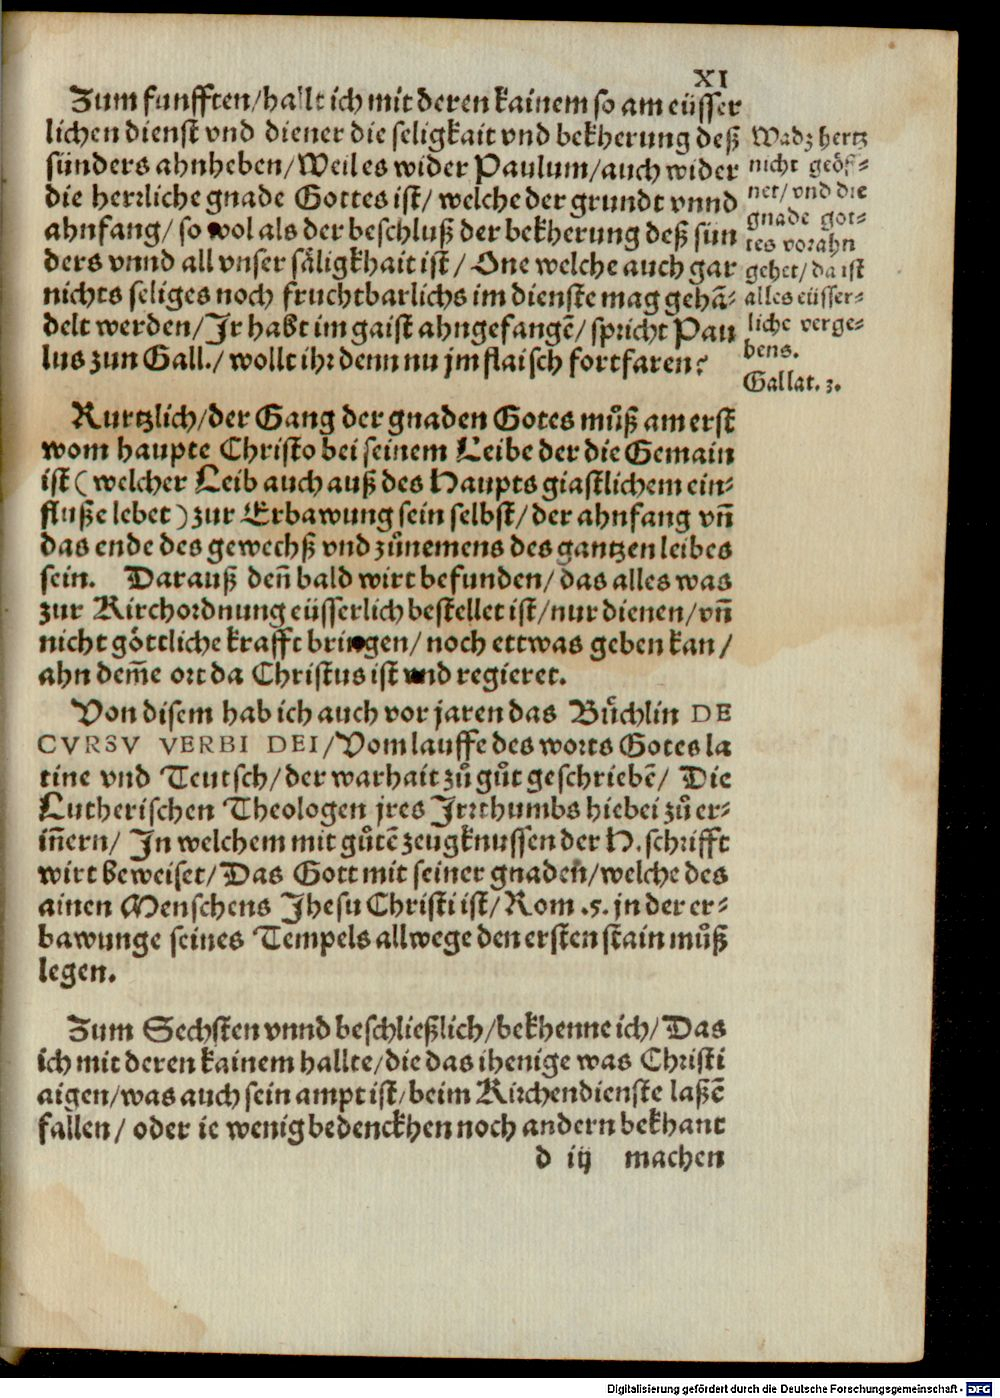 XI
Zum funfften/hallt ich mit deren kainem so am eüsser
lichen dienst vnd diener die seligkait vnd bekherung deß
sünders ahnheben/Weil es wider Paulum/auch wider
die herrliche gnade Gottes ist/ welche der grundt vnnd
ahnfang/ so wol als der beschluß der bekherung deß sün
ders vnnd all vnser säligkhait ist/ One welche auch gar
nichts seliges noch fruchtbarlichs im dienste mag gehā-
delt werden/Jr habt im gaist ahngefangē/ spricht Pau
lus zun Gall./ wollt ihr denn nu jm flaisch fortfaren?
Wadz hertz
nicht geöf-
net/ vnd die
gnade got-
tes vorahn
gehet/ da ist
alles eüsser-
liche verge-
bens.
Gallat. 3.
Kurtzlich/der Gang der gnaden Gotes můß am erst
wom haupte Christo bei seinem Leibe der die Gemain
ist ( welcher Leib auch auß des Haupts giastlichem ein-
fluße lebet ) zur Erbawung sein selbst/ der ahnfang vn̄
das ende des gewechß vnd zůnemens des gantzen leibes
sein. Darauß den̄ bald wirt befunden/ das alles was
zur Kirchordnung eüsserlich bestellet ist/ nur dienen/ vn̄
nicht göttliche krafft bringen/ noch ettwas geben kan/
ahn dem̄e ort da Christus ist vnd regieret.
Von disem hab ich auch vor jaren das Bůchlin DE
CVRSV VERBI DEI/Vom lauffe des worts Gotes la
tine vnd Teutsch/ der warhait zů gůt geschriebē/ Die
Lutherischen Theologen jres Jrrthumbs hiebei zů er-
in̄ern/ Jn welchem mit gůtē zeugknussen der H. schrifft
wirt beweiset/ Das Gott mit seiner gnaden/ welche des
ainen Menschens Jhesu Christi ist/ Rom .5. jn der er-
bawunge seines Tempels allwege den ersten stain můß
legen.
Zum Sechsten vnnd beschließlich/bekhenne ich/ Das
ich mit deren kainem hallte/ die das ihenige was Christi
aigen/ was auch sein ampt ist/ beim Kirchendienste laßē
fallen/ oder ie wenig bedenckhen noch andern bekhant
d iij machen
Digitalisierung gefördert durch die Deutsche Forschungsgemeinschaft - DFG